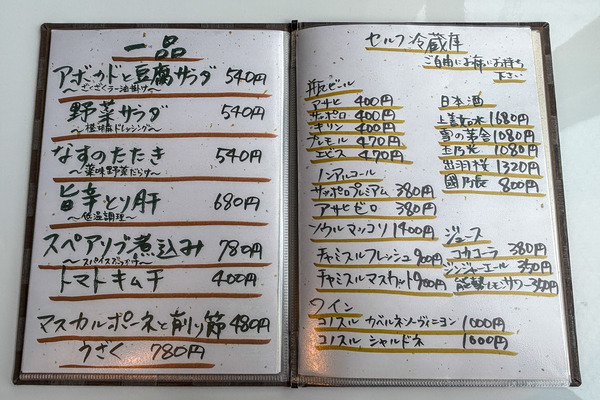 一品
アボカドと豆腐サラダ 540円
～ざくざくラー油掛け～
野菜サラダ 540円
なすのたたき 540円
～薬味野菜だらけ～
旨辛とり肝 680円
～低温調理～
スペアリブ煮込み 780円
トマトキムチ 400円
マスカルポーネと削り節 480円
うざく 780円
セルフ冷蔵庫
ご自由にお席にお持ち
下さい
瓶ビール
アサヒ 400円
サッポロ 400円
キリン 400円
プレモル 470円
エビス 470円
ノンアルコール
サッポロプレミアム 380円
アサヒゼロ 380円
ソウルマッコリ 1400円
チャミスルフレッシュ 900円
チャミスルマスカット 900円
ワイン
コノスル カベルネソーヴィニヨン 1000円
コノスル シャルドネ 1000円
日本酒
上善如水 1680円
1080円
玉乃光 1080円
出羽桜 1320円
國乃長 800円
ジュース
コカコーラ 380円
ジンジャーエール 350円
350円